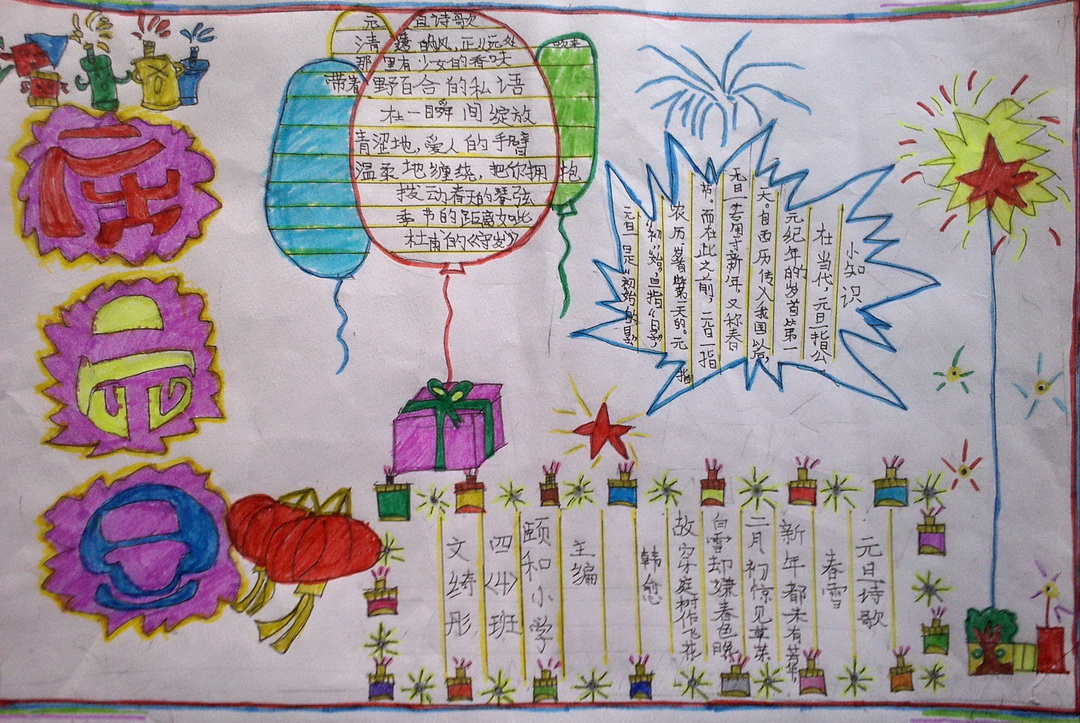 庆
元
旦
元旦诗歌
清晨的风,正从远处吹来
那里有少女的香味
带着野百合的私语
在一瞬间绽放
青涩地,爱人的手臂
温柔地缠绕,把你拥抱
拨动春天的琴弦
季节的距离如此
杜甫的《守岁》
小知识
在当代,元旦指公
元纪年的岁首第一
天。自西历传入我国以后,
元旦一专用于新年,又称春
节。而在此之前,元旦一指
农历岁首第一天的。元指
"初"始。旦指"日"
元旦一是"初始的日"
元旦诗歌
春雪
新年都未有芳华,
二月初惊见草芽
白雪却嫌春色晚
故穿庭树作飞花
韩愈
主编
颐和小学
四〈4〉班
文绮彤